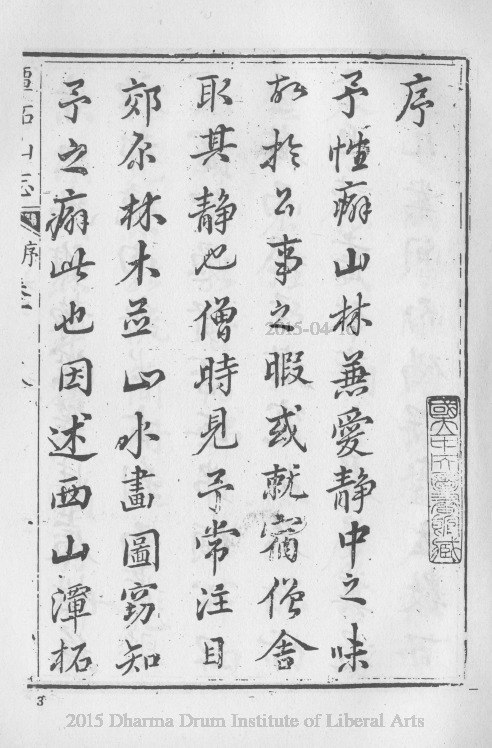 序
予性癖山林兼愛静中之味
故於公事之暇或就宿僧舎
取其静也僧時見予常注目
郊原林木並山水畫圖窃知
予之癖此也因述西山潭柘
柘山志
序
2015-04-16
3
2015 Dharma Drum Institute of Liberal Arts